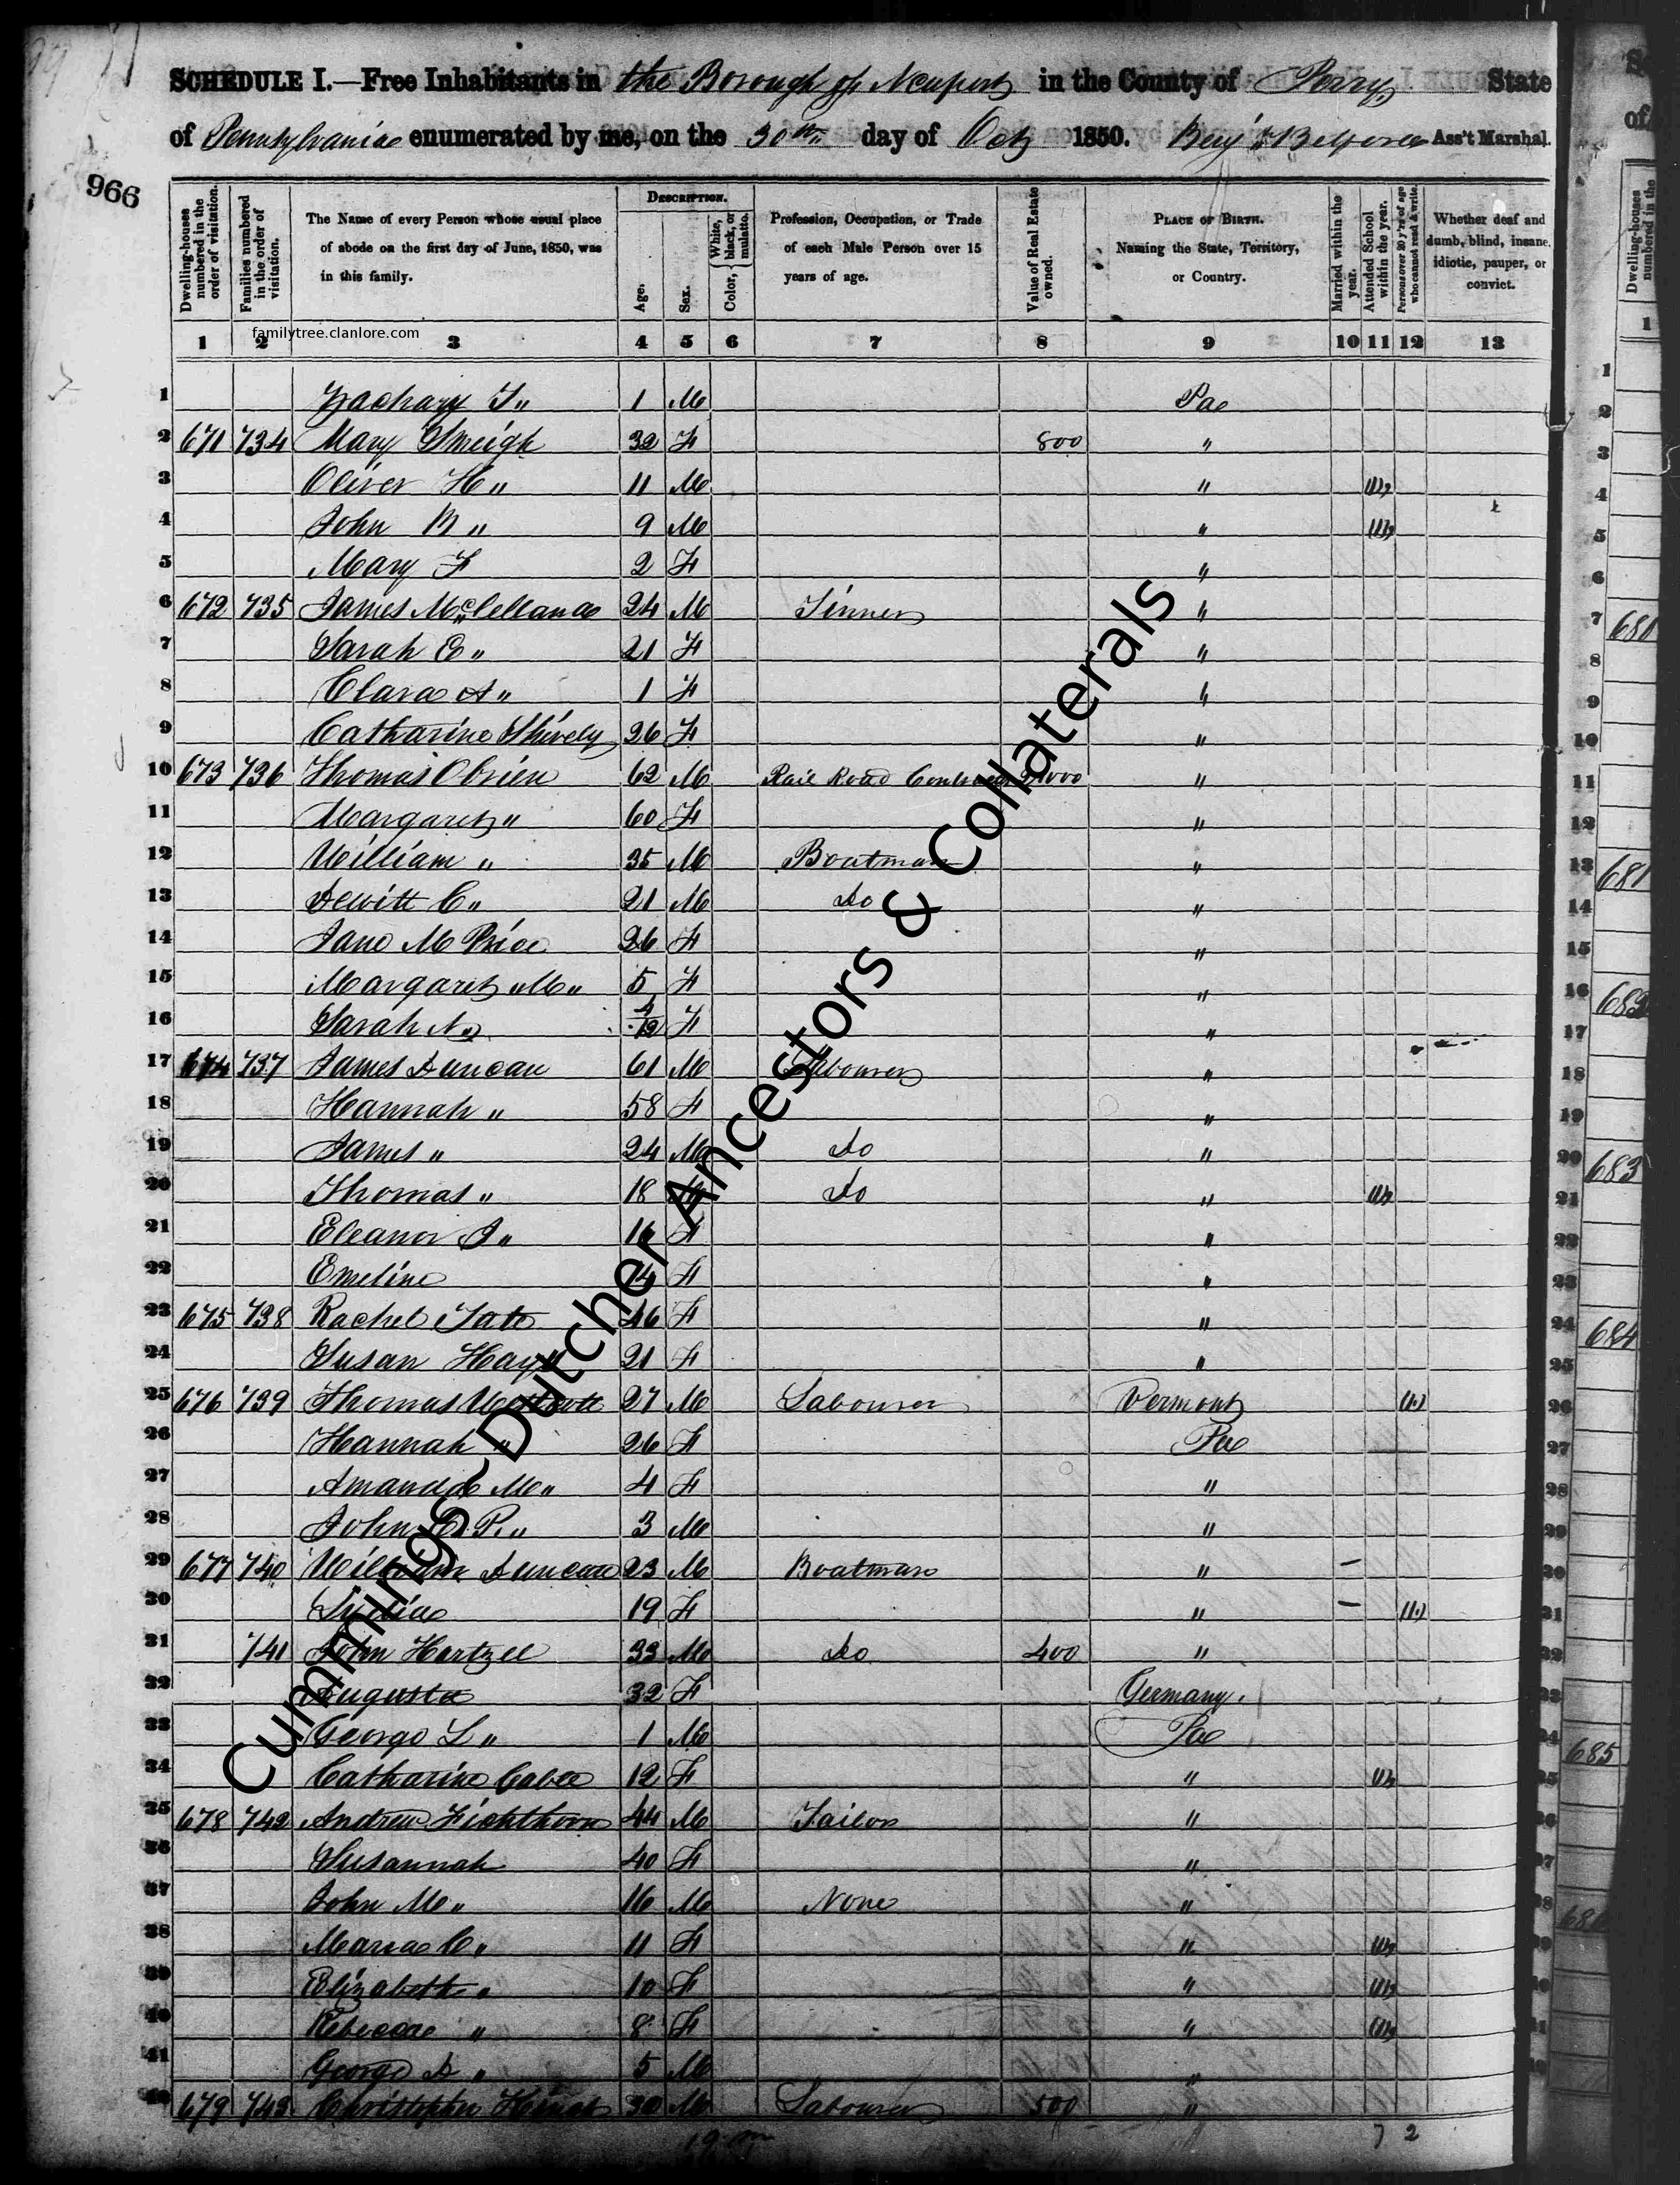 SCHEDULE I.—Free Inhabitants in the Borough of Newport in the County of Perry State
of Pennsylvania enumerated by me, on the 30th day of Oct 1850. Ass't Marshal.
966
Dwelling-houses numbered in the order of visitation.
Families numbered in the order of visitation.
The Name of every Person whose usual place of abode on the first day of June, 1850, was in this family.
DESCRIPTION.
Age.
Sex.
Color, White, black, or mulatto.
Profession, Occupation, or Trade of each Male Person over 15 years of age.
Value of Real Estate owned.
PLACE OF BIRTH. Naming the State, Territory, or Country.
Married within the year.
Attended School within the year.
Persons over 20 y'rs of age who cannot read & write.
Whether deaf and dumb, blind, insane, idiotic, pauper, or convict.
familytree.clanlore.com
1 2 3 4 5 6 7 8 9 10 11 12 13
1 Zachary T " 1 M Pa
2 671 734 Mary Smeigh 32 F 800 "
3 Oliver H " 11 M " (1)
4 John B " 9 M " (1)
5 Mary F 2 F "
6 672 735 James McClelland 24 M Tinner "
7 Sarah E " 21 F "
8 Clara A " 1 F "
9 Catharine Shively 26 F "
10 673 736 Thomas Obrien 62 M Rail Road Contractor "
11 Margaret " 60 F "
12 William " 35 M Boatman "
13 Dewitt C " 21 M Do "
14 Jane M Price 26 F "
15 Margaret "M" 5 F "
16 Sarah F "
17 674 737 James Duncan 61 M Labourer "
18 Hannah " 58 F "
19 James " 24 M Do "
20 Thomas " 18 M Do " (1)
21 Eleanor J " 16 F "
22 Emeline 14 F "
23 675 738 Rachel Tate 46 F "
24 Susan Hays 21 F "
25 676 739 Thomas 27 M Labourer Vermont (1)
26 Hannah " 26 F Pa
27 Amanda M " 4 F "
28 John P. " 3 M "
29 677 740 William Duncan 23 M Boatman " –
30 Lydia 19 F " – (1)
31 741 John Hartzell 33 M Do 400 "
32 Augusta 32 F Germany.
33 George L " 1 M Pa
34 Catharine Cable 12 F " (1)
35 678 742 Andrew Fichthorn 44 M Tailor "
36 Susannah 40 F "
37 John M " 16 M None "
38 Maria C " 11 F " (1)
39 Elizabeth " 10 F " (1)
40 Rebecca " 8 F " (1)
41 George D " 5 M "
42 679 743 Christopher 30 M Labourer 500 "
7 2
Cummings-Dutcher Ancestors & Collaterals
Dwelling-houses numbered in the
1
680
681
682
683
684
685
686